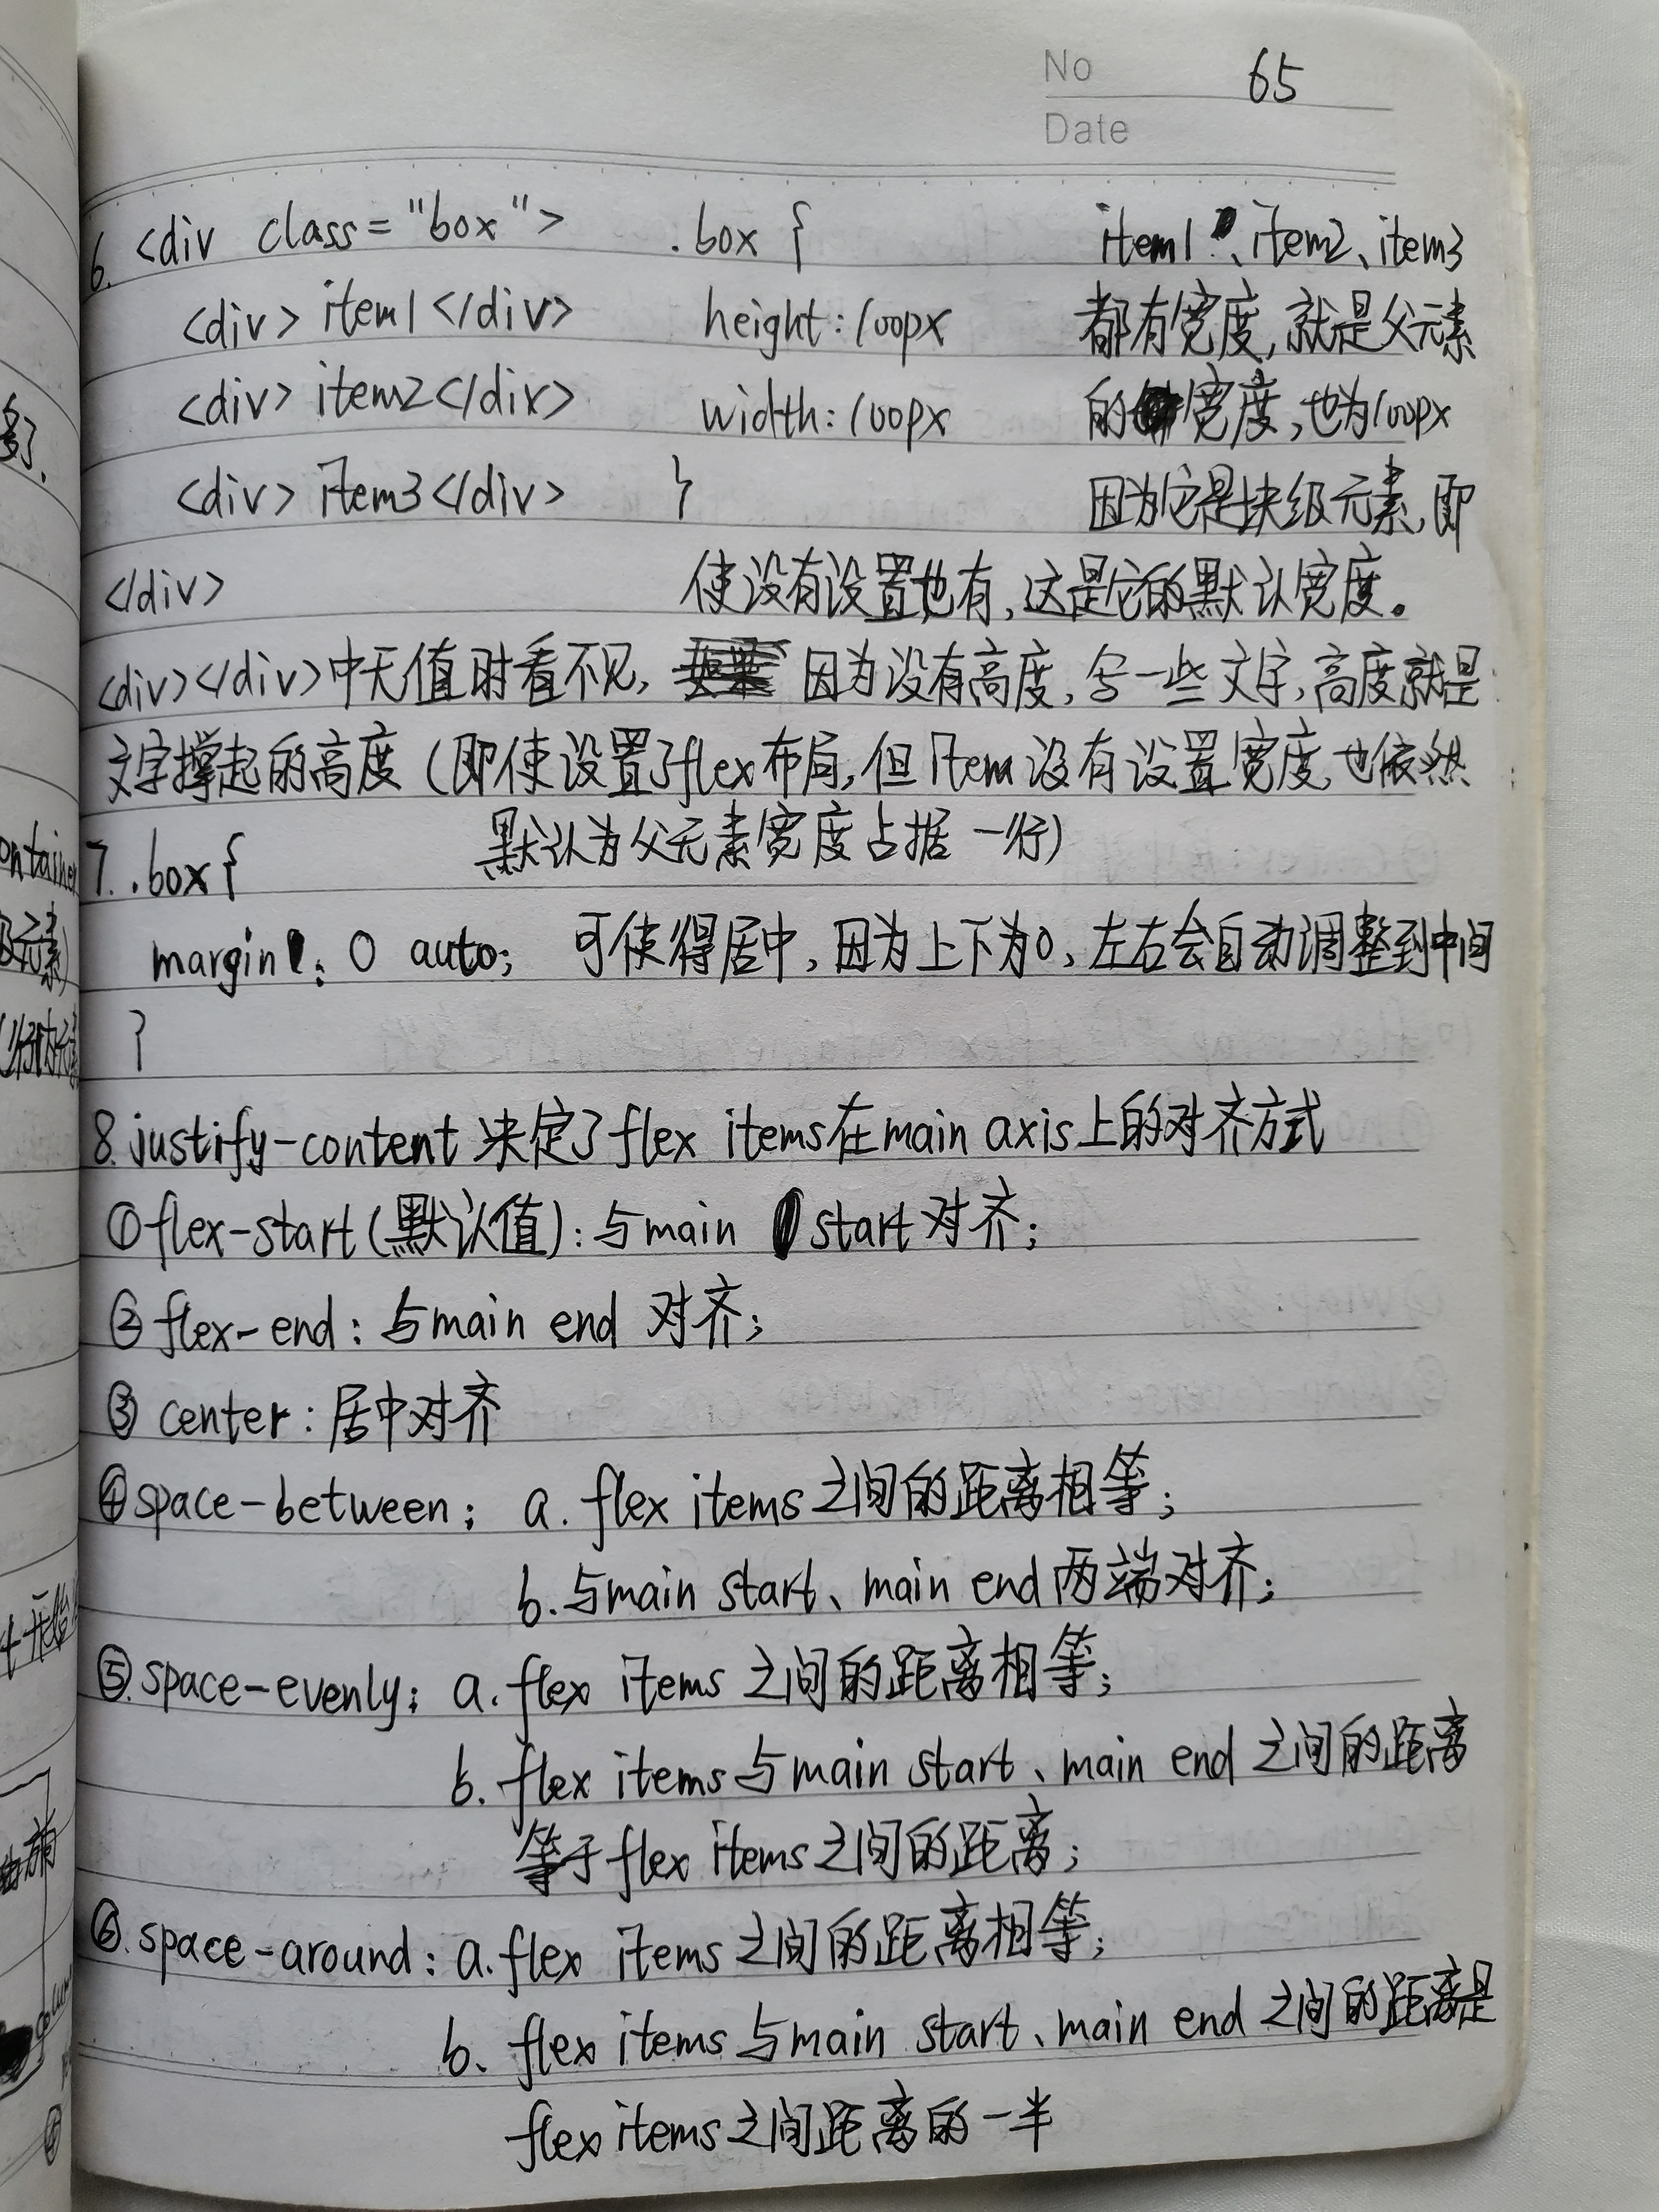 No 65
Date
6. <div class="box"> .box { item1、item2、item3
<div> item1 </div> height:100px 都有宽度,就是父元素
<div> item2 </div> width:100px 的宽度,也为100px
<div> item3 </div> } 因为它是块级元素,即
</div> 使没有设置也有,这是它的默认宽度。
<div></div>中无值时看不见, 因为没有高度,写一些文字,高度就是
文字撑起的高度(即使设置了flex布局,但item没有设置宽度,也依然
默认为父元素宽度占据一行)
7. .box{
margin: 0 auto; 可使得居中,因为上下为0,左右会自动调整到中间
}
8. justify-content 决定了flex items在main axis上的对齐方式
①flex-start(默认值):与main start对齐;
②flex-end:与main end 对齐;
③ center:居中对齐
④space-between; a. flex items之间的距离相等;
b.与main start、main end两端对齐;
⑤.space-evenly; a. flex items 之间的距离相等;
b. flex items与main start、main end 之间的距离
等于flex items之间的距离;
⑥.space-around: a. flex items之间的距离相等;
b、flex items与main start、main end之间的距离是
flex items之间距离的一半
多了.
ontainer
级元素)
(行内元素
colum